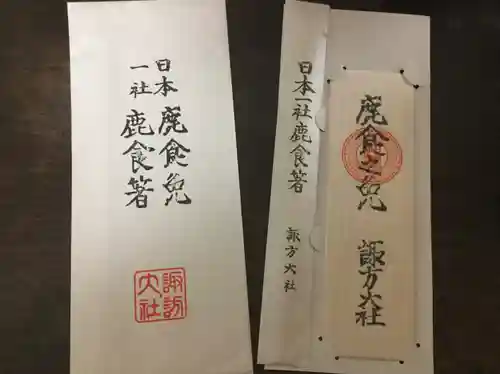 日本
一社
鹿食免
鹿食箸
諏訪
大社
日本一社鹿食箸
諏方大社
鹿食之免
諏方大社